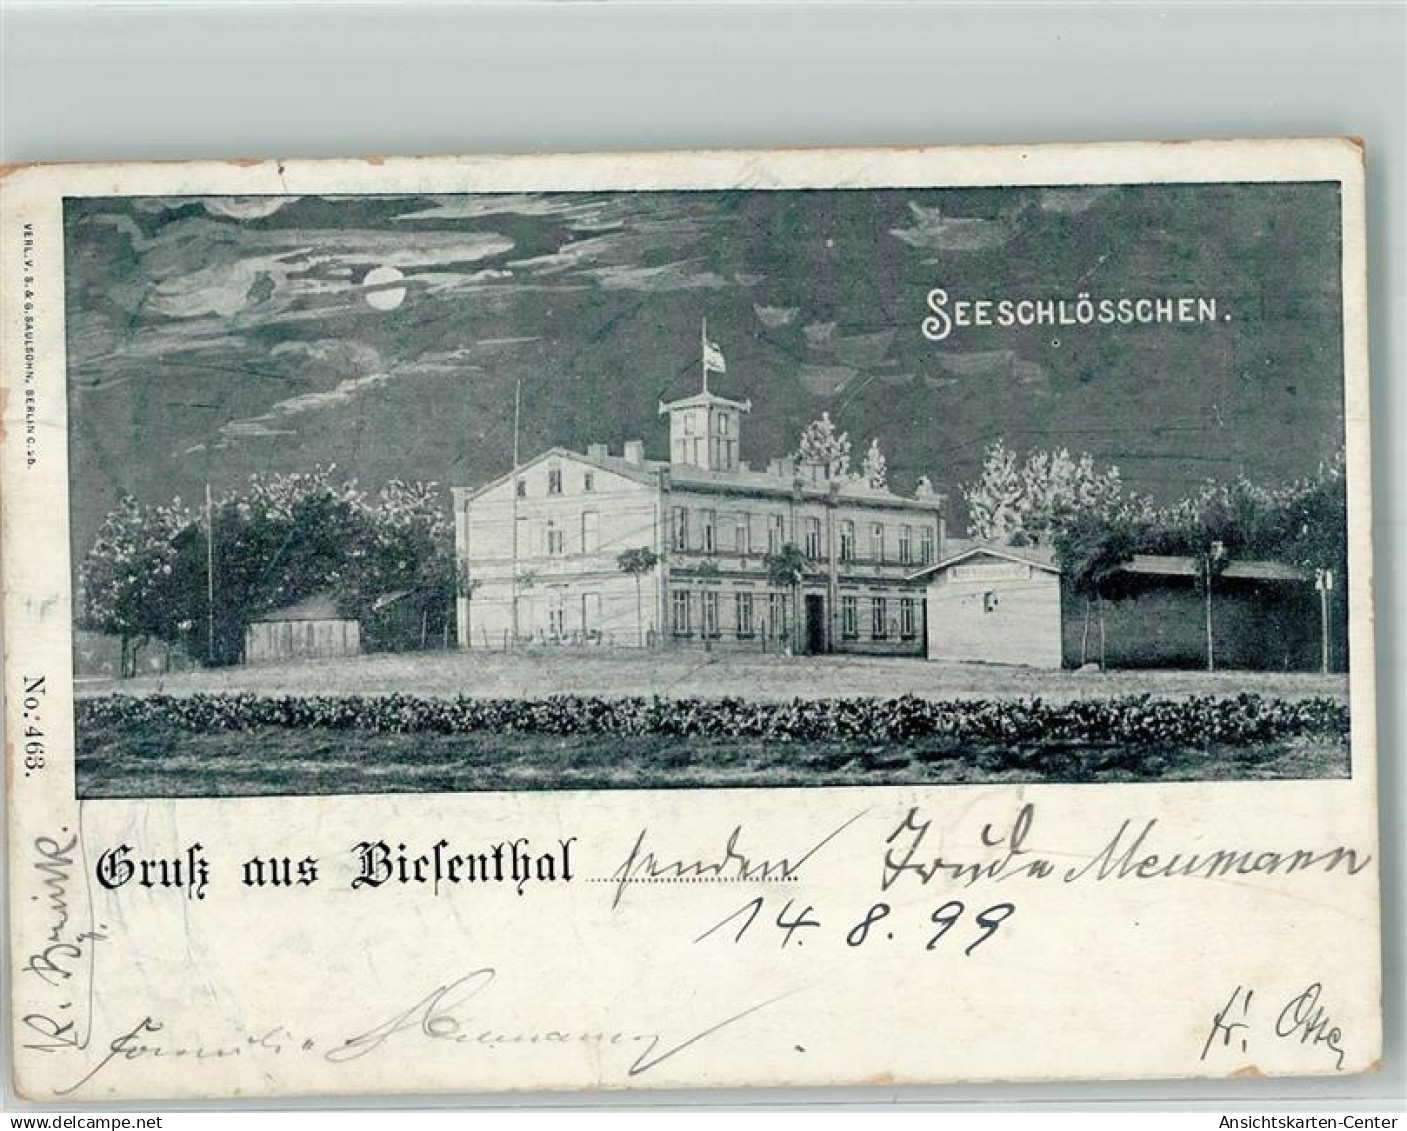 SEESCHLÖSSCHEN.
VERL. V. S. & G. SAULSOHN, BERLIN C. 25.
No: 463.
Gruß aus Biesenthal senden Trude Neumann
14. 8. 99
Familie Neumann
fr. Otte
Ansichtskarten-Center